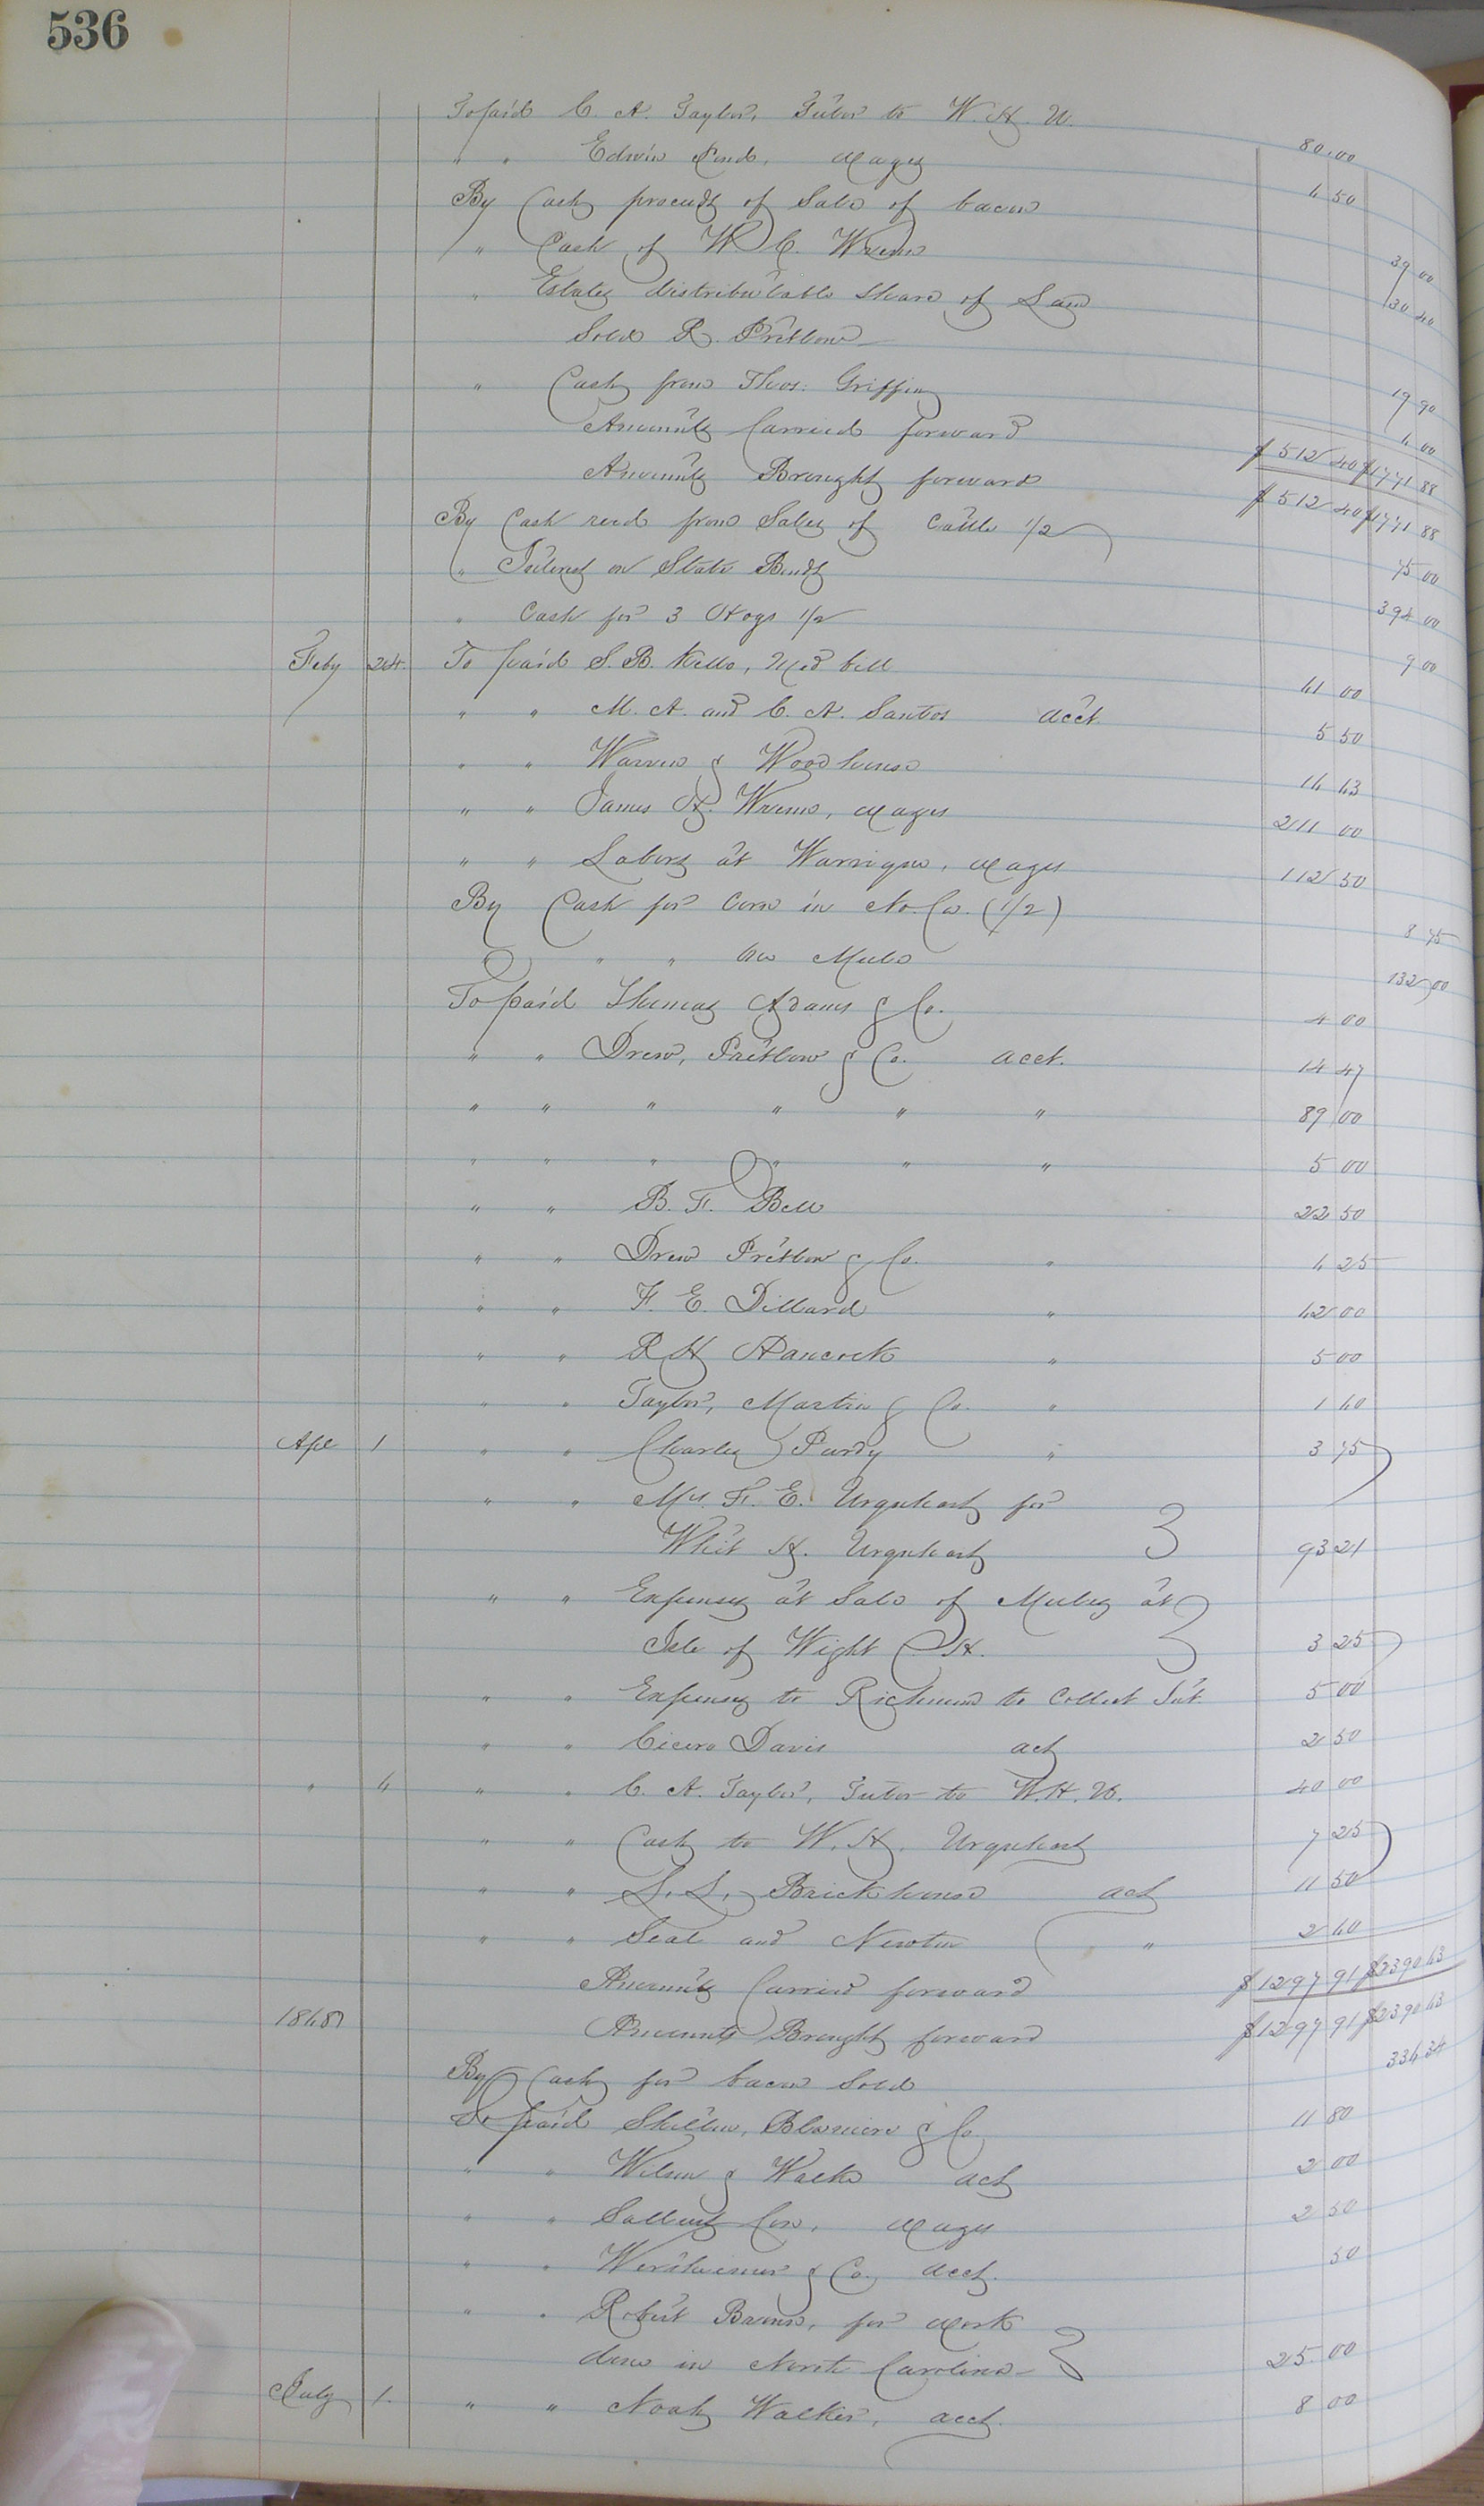 536
To paid C. A. Taylor, Tutor to W. H. U. 80.00
" " Edwin Pond, Wages 6 50
By Cash proceeds of Sale of bacon 39 00
" Cash of W. C. Wrenn 30 40
" Estates distributable Share of Law
Sold R. Pretlow 19 90
" Cash from Thos: Griffin 6 00
Amounts Carried forward $512 40 $1771 88
Amounts Brought forward $512 40 $1771 88
By Cash recd from Sales of Cattle 1/2 75 00
" Interest on State Bonds 394 00
" Cash for 3 Hogs 1/2 9 00
Feby 24. To paid S. B. Kello, Med bill 61 00
" " M. A. and C. A. Santos acct. 5 50
" " Warren & Woodhouse 16 63
" " James H. Wrenn, Wages 211 00
" " Labors at Warrique, Wages 112 50
By Cash for Corn in No. Co. (1/2) 8 75
" " " Mule 132 00
To paid Thomas Adams & Co. 4 00
" " Drew, Pretlow & Co. acct. 14 47
" " " " " " 89 00
" " " " " " 5 00
" " B. F. Bell 22 50
" " Drew Pretlow & Co. " 6 25
" " F. E. Dillard " 62 00
" " R H Hancock " 5 00
" " Taylor, Martin & Co. " 1 60
Apl 1 " " Charley Purdy " 3 75
" " Mrs. F. E. Urquhart for
Whit H. Urquhart 93 21
" " Expenses at Sale of Mules at
Isle of Wight C. H. 3 25
" " Expenses to Richmond to Collect Int. 5 00
" " Cicero Davis act 2 50
" 6 " " C. A. Taylor, Tutor to W. H. U. 40 00
" " Cash to W. H. Urquhart 7 25
" " S. S. Brickhouse act 11 50
" " Seal and Newton " 2 60
Amounts Carried forward $1297 91 $2390 63
1868 Amounts Brought forward $1297 91 $2390 63
By Cash for bacon Sold 336 34
To paid & Co. 11 80
" " Wilson & Walke act 2 00
" " Wages 2 50
" " Wertheimer & Co. acct. 50
" " Robert Brown, for work
done in North Carolina 25 00
July 1. " " Noah Walker, acct. 8 00